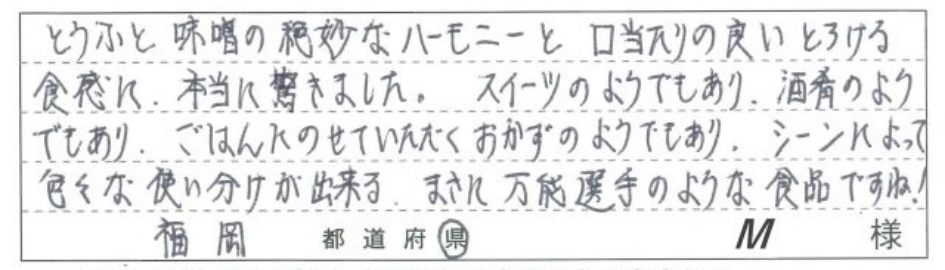 とうふと味噌の絶妙なハーモニーと口当たりの良いとろける
食感に、本当に驚きました。 スイーツのようでもあり、酒肴のよう
でもあり、ごはんにのせていただくおかずのようでもあり、シーンによって
色々な使い分けが出来る、まさに万能選手のような食品ですね!
福岡 都道府県 M 様